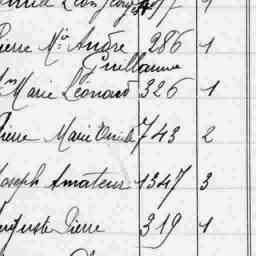 Pierre Mie André 286 1
Guillaume
Marie Léonard 326 1
Pierre Marie Emile 743 2
Joseph Amateur 1347 3
Auguste Pierre 319 1